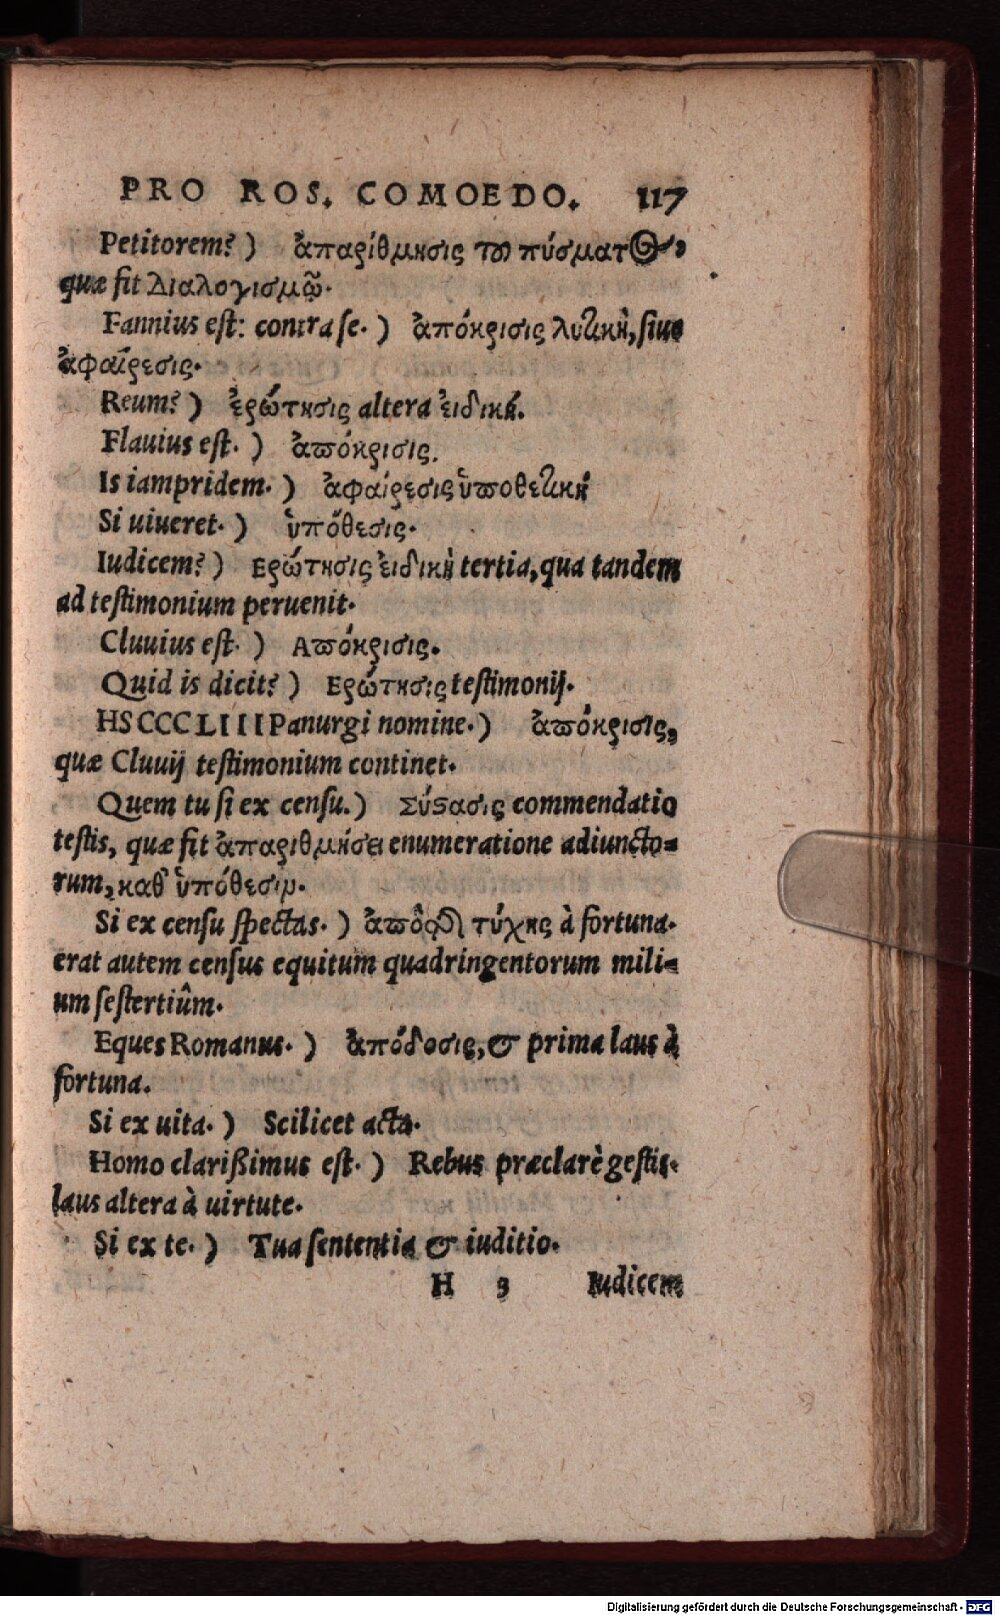 PRO ROS. COMOEDO. 117
Petitorem? ) ἀπαρίθμησις τῦ πύσματος,
quæ fit Διαλογισμῷ.
Fannius est: contra se. ) ἀπόκρισις λυτικὴ, siue
ἀφαίρεσις.
Reum? ) ἐρώτησις altera ἐιδική.
Flauius est. ) ἀπόκρισις.
Is iampridem. ) ἀφαίρεσις ὑποθετικὴ
Si uiueret. ) ὑπόθεσις.
Iudicem? ) Ερώτησις ἐιδικὴ tertia, qua tandem
ad testimonium peruenit.
Cluuius est. ) Απόκρισις.
Quid is dicit? ) Ερώτησις testimonij.
HS CCCLIII Panurgi nomine. ) ἀπόκρισις,
quæ Cluuij testimonium continet.
Quem tu si ex censu. ) Σύστασις commendatio
testis, quæ fit ἀπαριθμήσει enumeratione adiuncto-
rum, καθ' ὑπόθεσιν.
Si ex censu spectas. ) ἀπὸ τύχης à fortuna.
erat autem census equitum quadringentorum mili-
um sestertiûm.
Eques Romanus. ) ἀπόδοσις, & prima laus à
fortuna.
Si ex uita. ) Scilicet acta.
Homo clarißimus est. ) Rebus præclarè gestis.
laus altera à uirtute.
Si ex te. ) Tua sententia & iuditio.
H 3 Iudicem
Digitalisierung gefördert durch die Deutsche Forschungsgemeinschaft - DFG